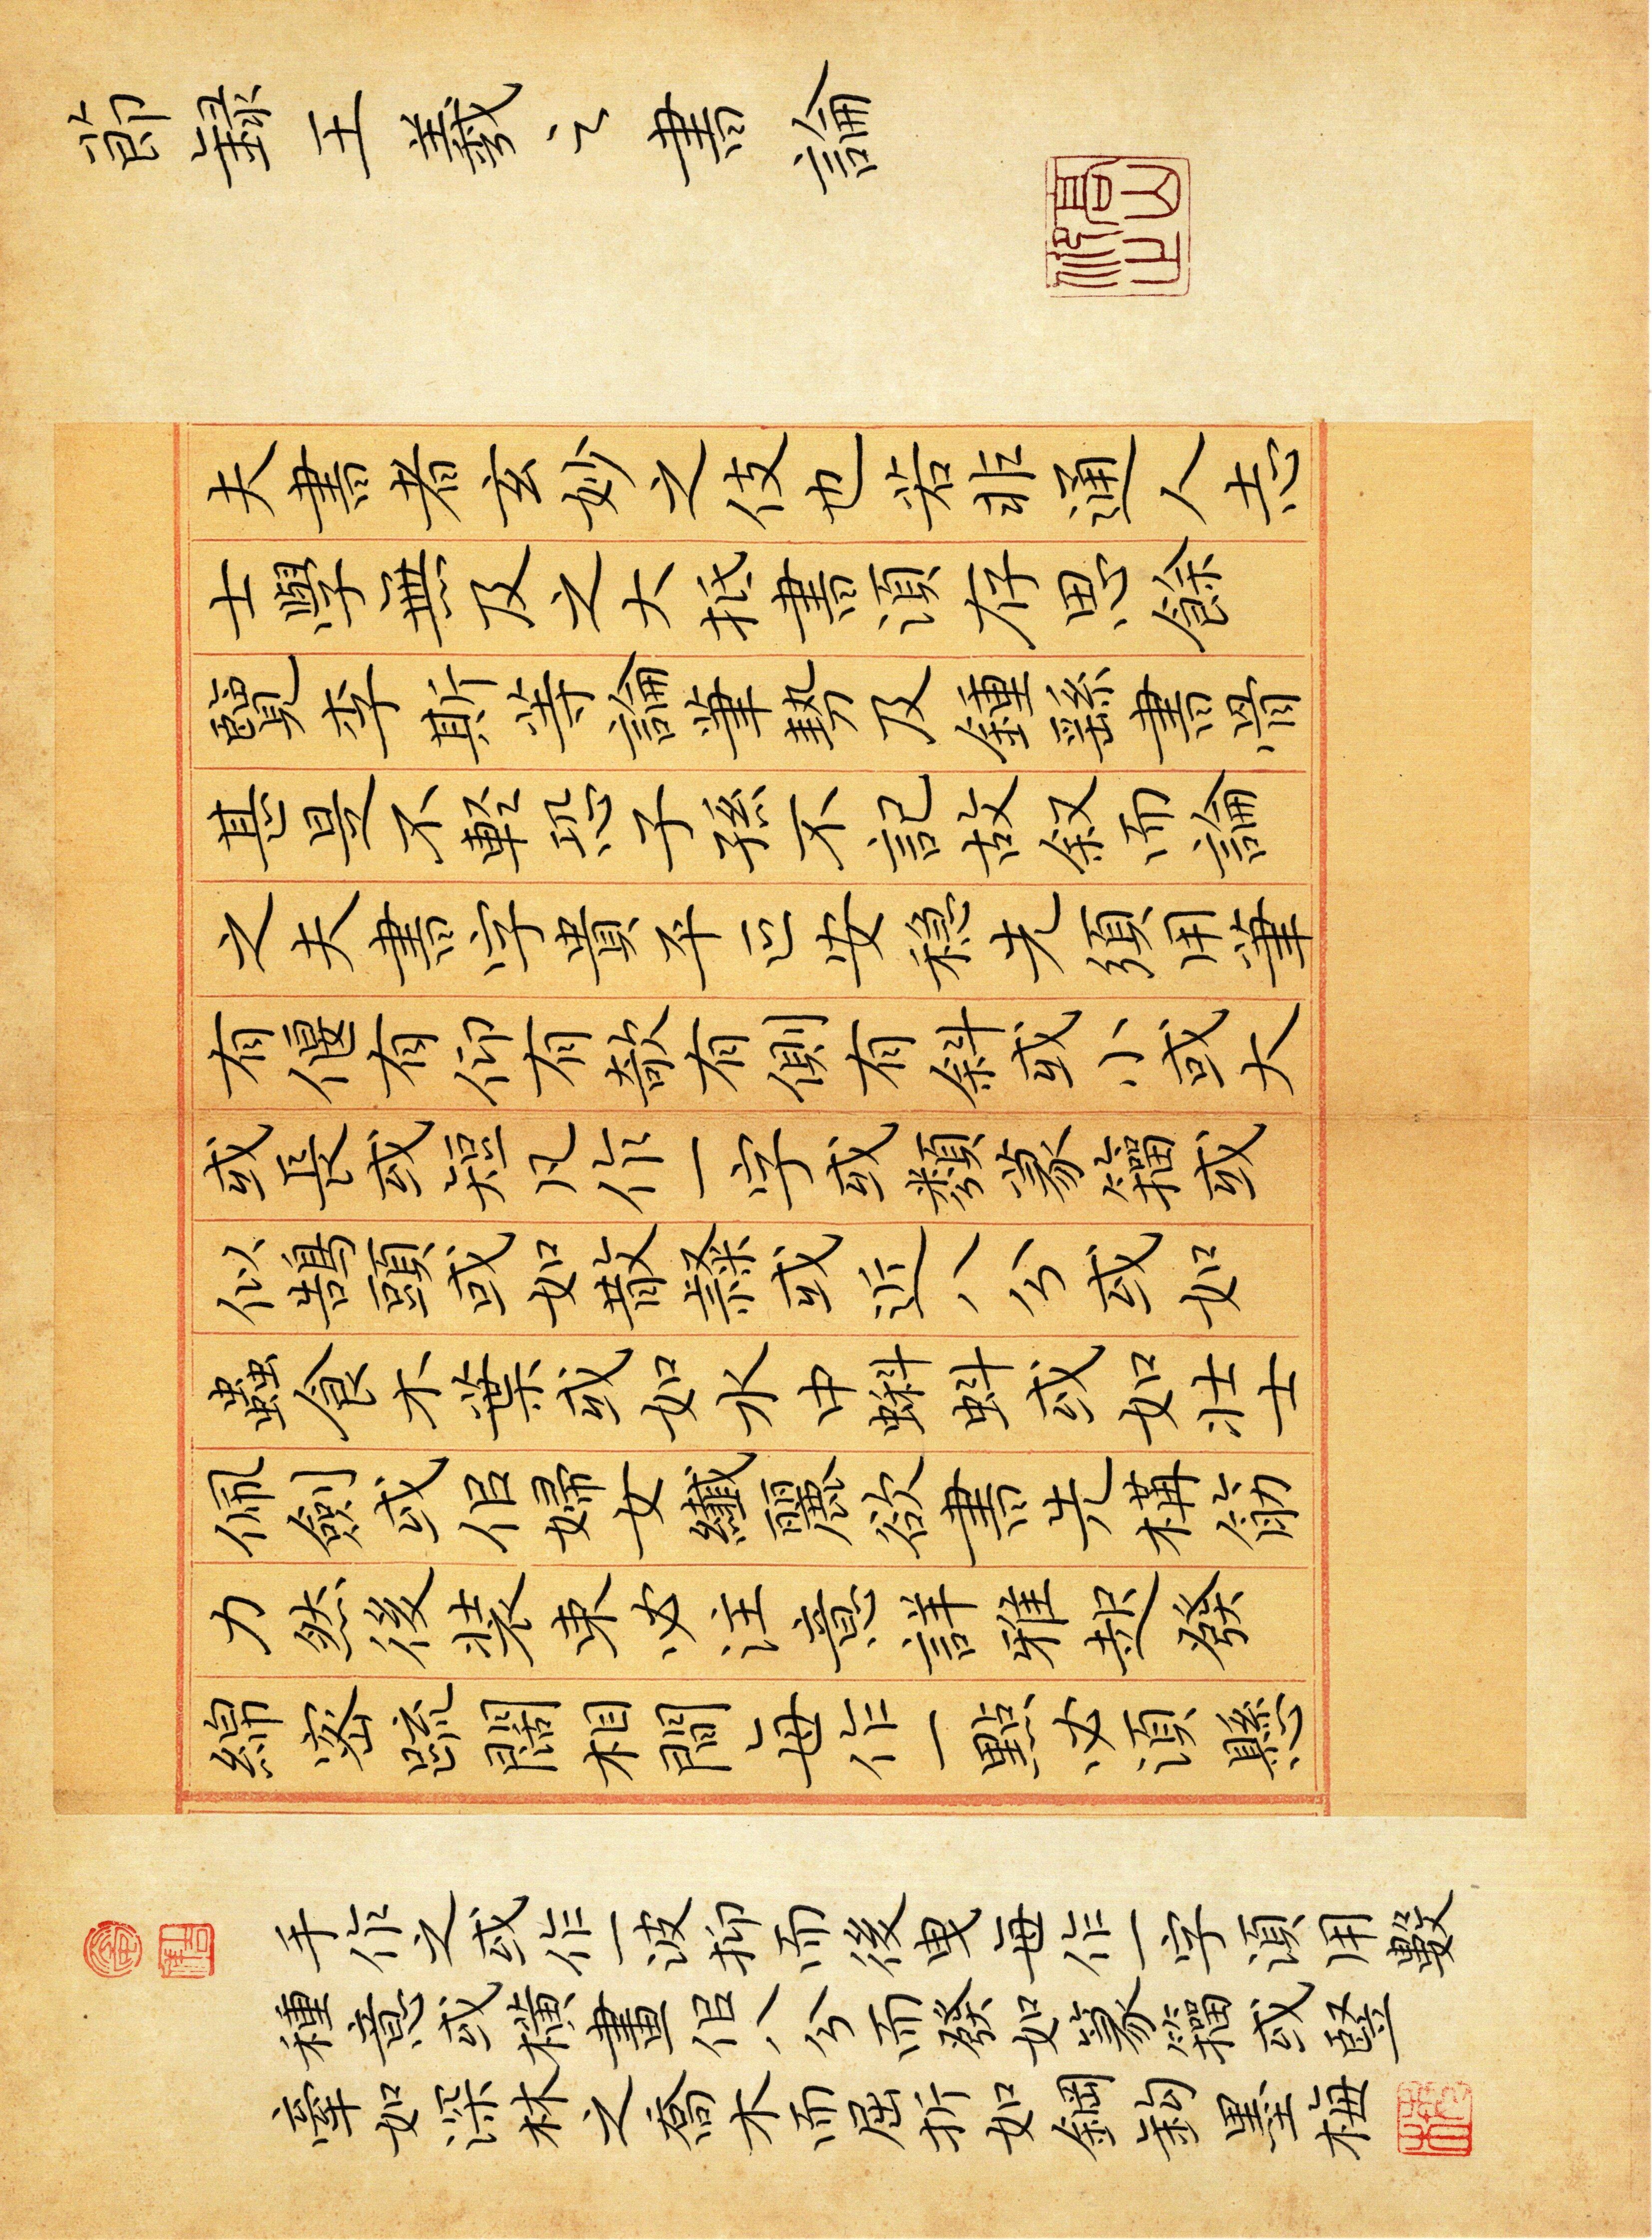 節錄王羲之書論
夫書者玄妙之伎也若非通人志
士學無及之大抵書須存思餘
覽李斯等論筆勢及鍾繇書骨
甚是不輕恐子孫不記故叙而論
之夫書字貴平正安穩先須用筆
有偃有仰有欹有側有斜或小或大
或長或短凡作一字或類篆籀或
似鵠頭或如散隸或近八分或如
蟲食木葉或如水中蝌蚪或如壯士
佩劍或佀婦女纖麗欲書先構筋
力然後裝束必注意詳雅起發
綿密疏闊相間每作一點必須懸
手作之或作一波抑而後曳每作一字須用數
種意或橫畫佀八分而發如篆籀或竪
牽如深林之喬木而屈折如鋼鉤墨梅